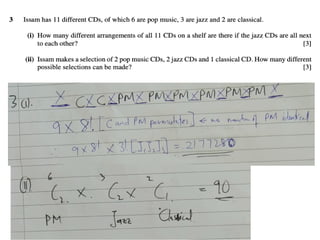 3 Issam has 11 different CDs, of which 6 are pop music, 3 are jazz and 2 are classical.
(i) How many different arrangements of all 11 CDs on a shelf are there if the jazz CDs are all next to each other? [3]
(ii) Issam makes a selection of 2 pop music CDs, 2 jazz CDs and 1 classical CD. How many different possible selections can be made? [3]
3 (i). X C X C X PM X PM X PM X PM X PM X PM X
9 x 8! [C and PM permutates] ← no matter if PM identical
∴ 9 x 8! x 3! [J,J,J,] = 2177280
(ii) ⁶C₂ x ³C₂ x ²C₁ = 90
PM Jazz Classical